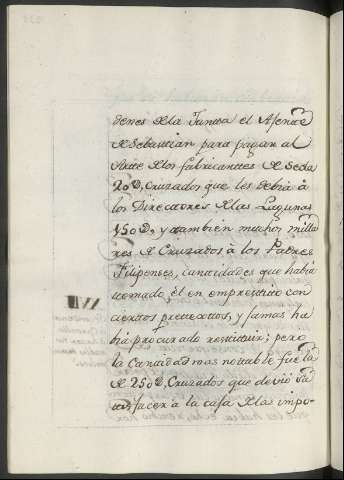 denes de la Junta el Asente
de Sebastian para pagar al
Arte de los fabricantes de Seda
20@, Cruzados que les debia à
los Directores de las Lagunas
150@, y tambien muchos milla
res de Cruzados à los Padres
Filipenses, cantidades que habia
tomado èl en emprestito con
ciertos pretextos, y jamas ha
bia procurado restituir; pero
la cantidad mas notable fue la
de 250@, Cruzados que deviò sa
tisfacer à la casa de la impo-